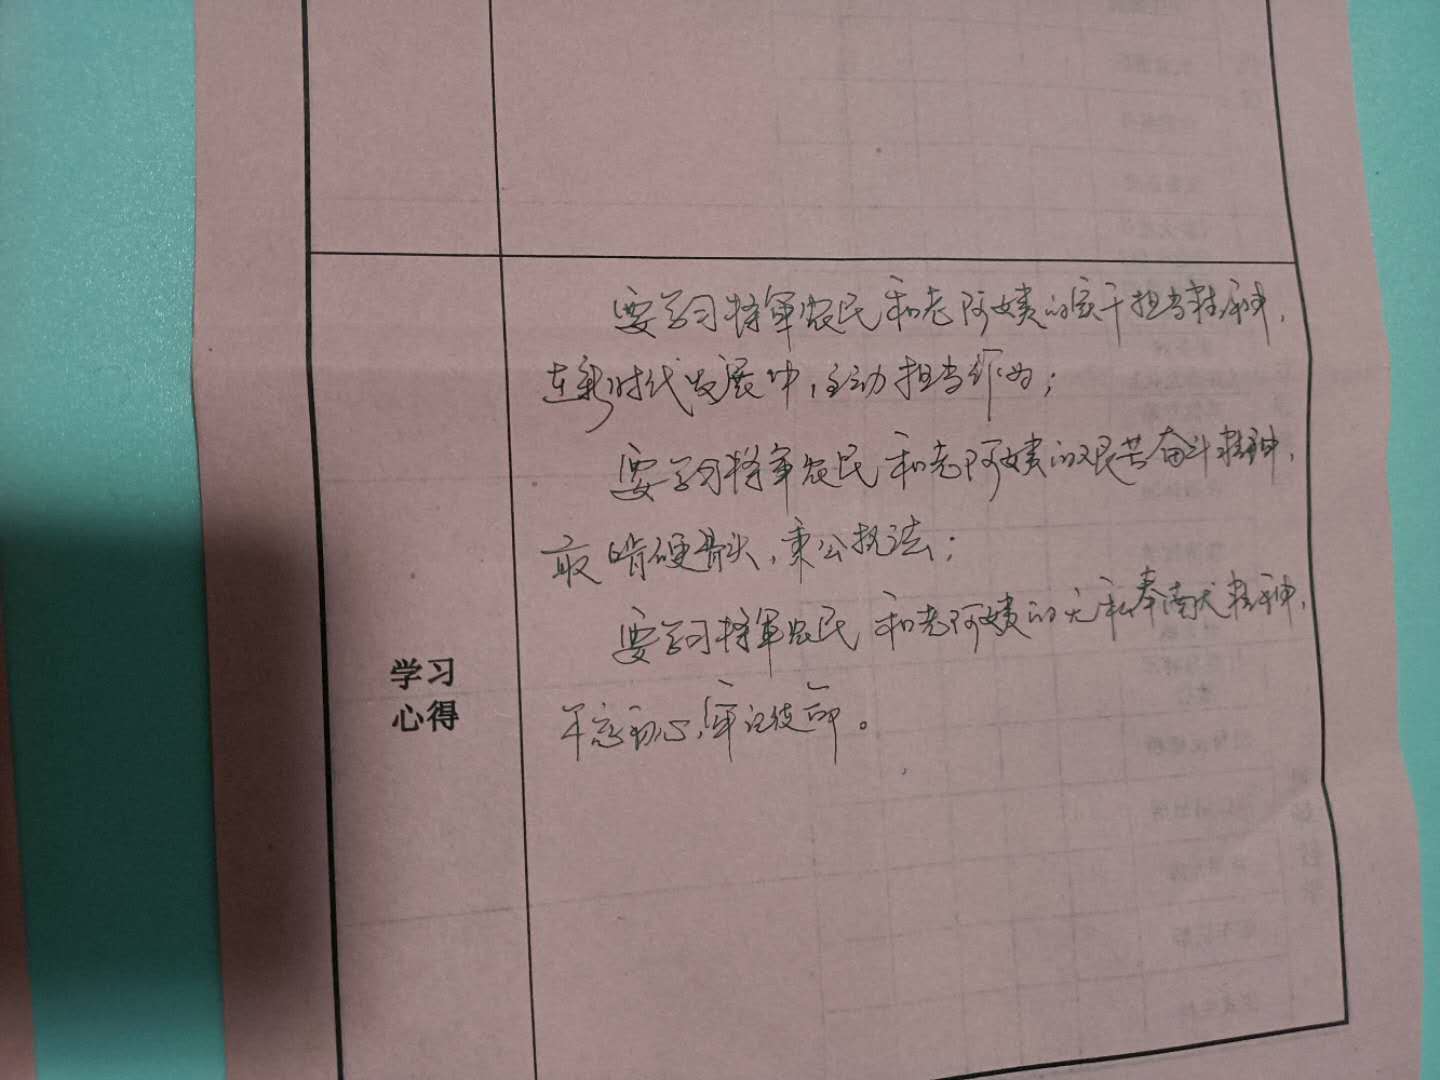 要学习将军农民和老阿姨的实干担当精神,
在新时代发展中,主动担当作为;
要学习将军农民和老阿姨的艰苦奋斗精神,
敢啃硬骨头,秉公执法;
要学习将军农民和老阿姨的无私奉献精神,
不忘初心,牢记使命。
学习
心得